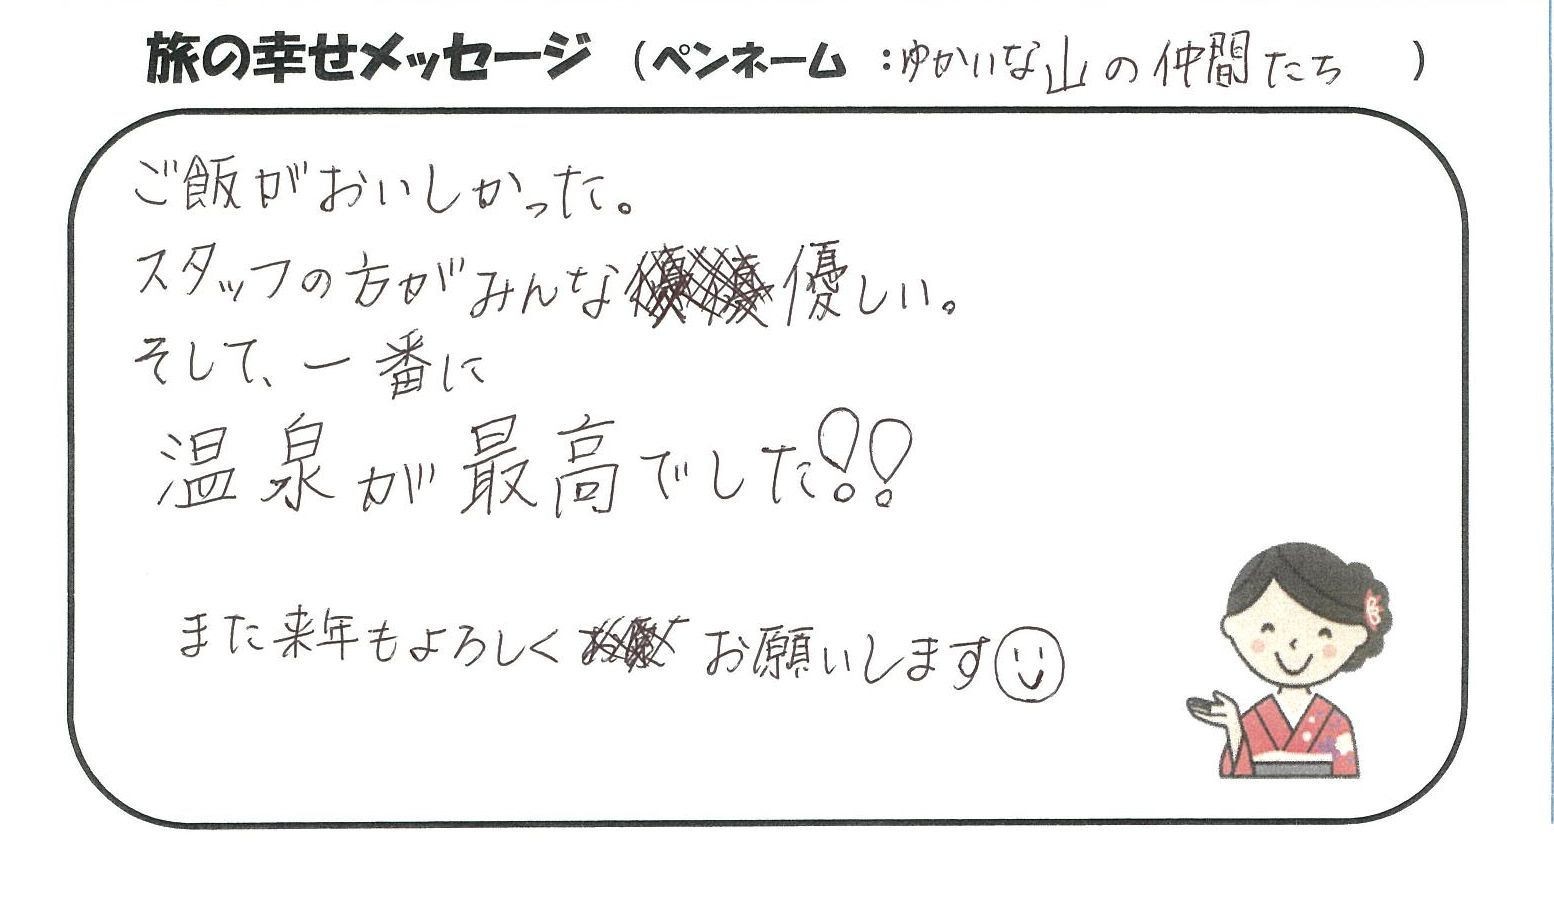 旅の幸せメッセージ (ペンネーム :ゆかいな山の仲間たち )
ご飯がおいしかった。
スタッフの方がみんな優しい。
そして、一番に
温泉が最高でした!!
また来年もよろしくお願いします